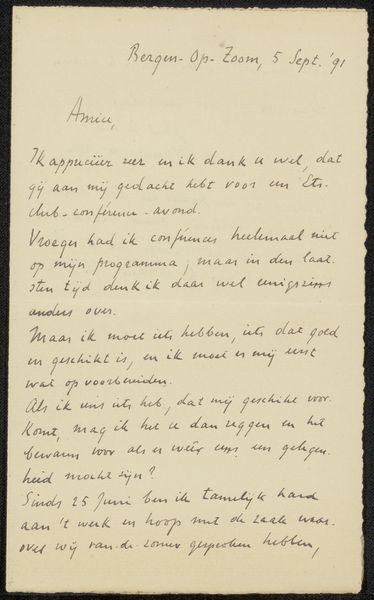 Bergen-Op-Zoom, 5 Sept. '91
Amice,
Ik apprecieer zeer en ik dank u wel, dat
gij aan mij gedacht hebt voor een Ets-
club-conférence-avond.
Vroeger had ik conférences heelemaal niet
op mijn programma, maar in den laat-
sten tijd denk ik daar wel eenigszins
anders over.
Maar ik moet iets hebben, iets dat goed
en geschikt is, en ik moet er mij eerst
wat op voorbereiden.
Als ik eens iets heb, dat mij geschikt voor-
komt, mag ik het u dan zeggen en het
bewaren voor als er wéér eens een gelegen-
heid mocht zijn?
Sinds 25 Juni ben ik tamelijk hard
aan 't werk en hoop met de zaak waar-
over wij van de zomer gesproken hebben,